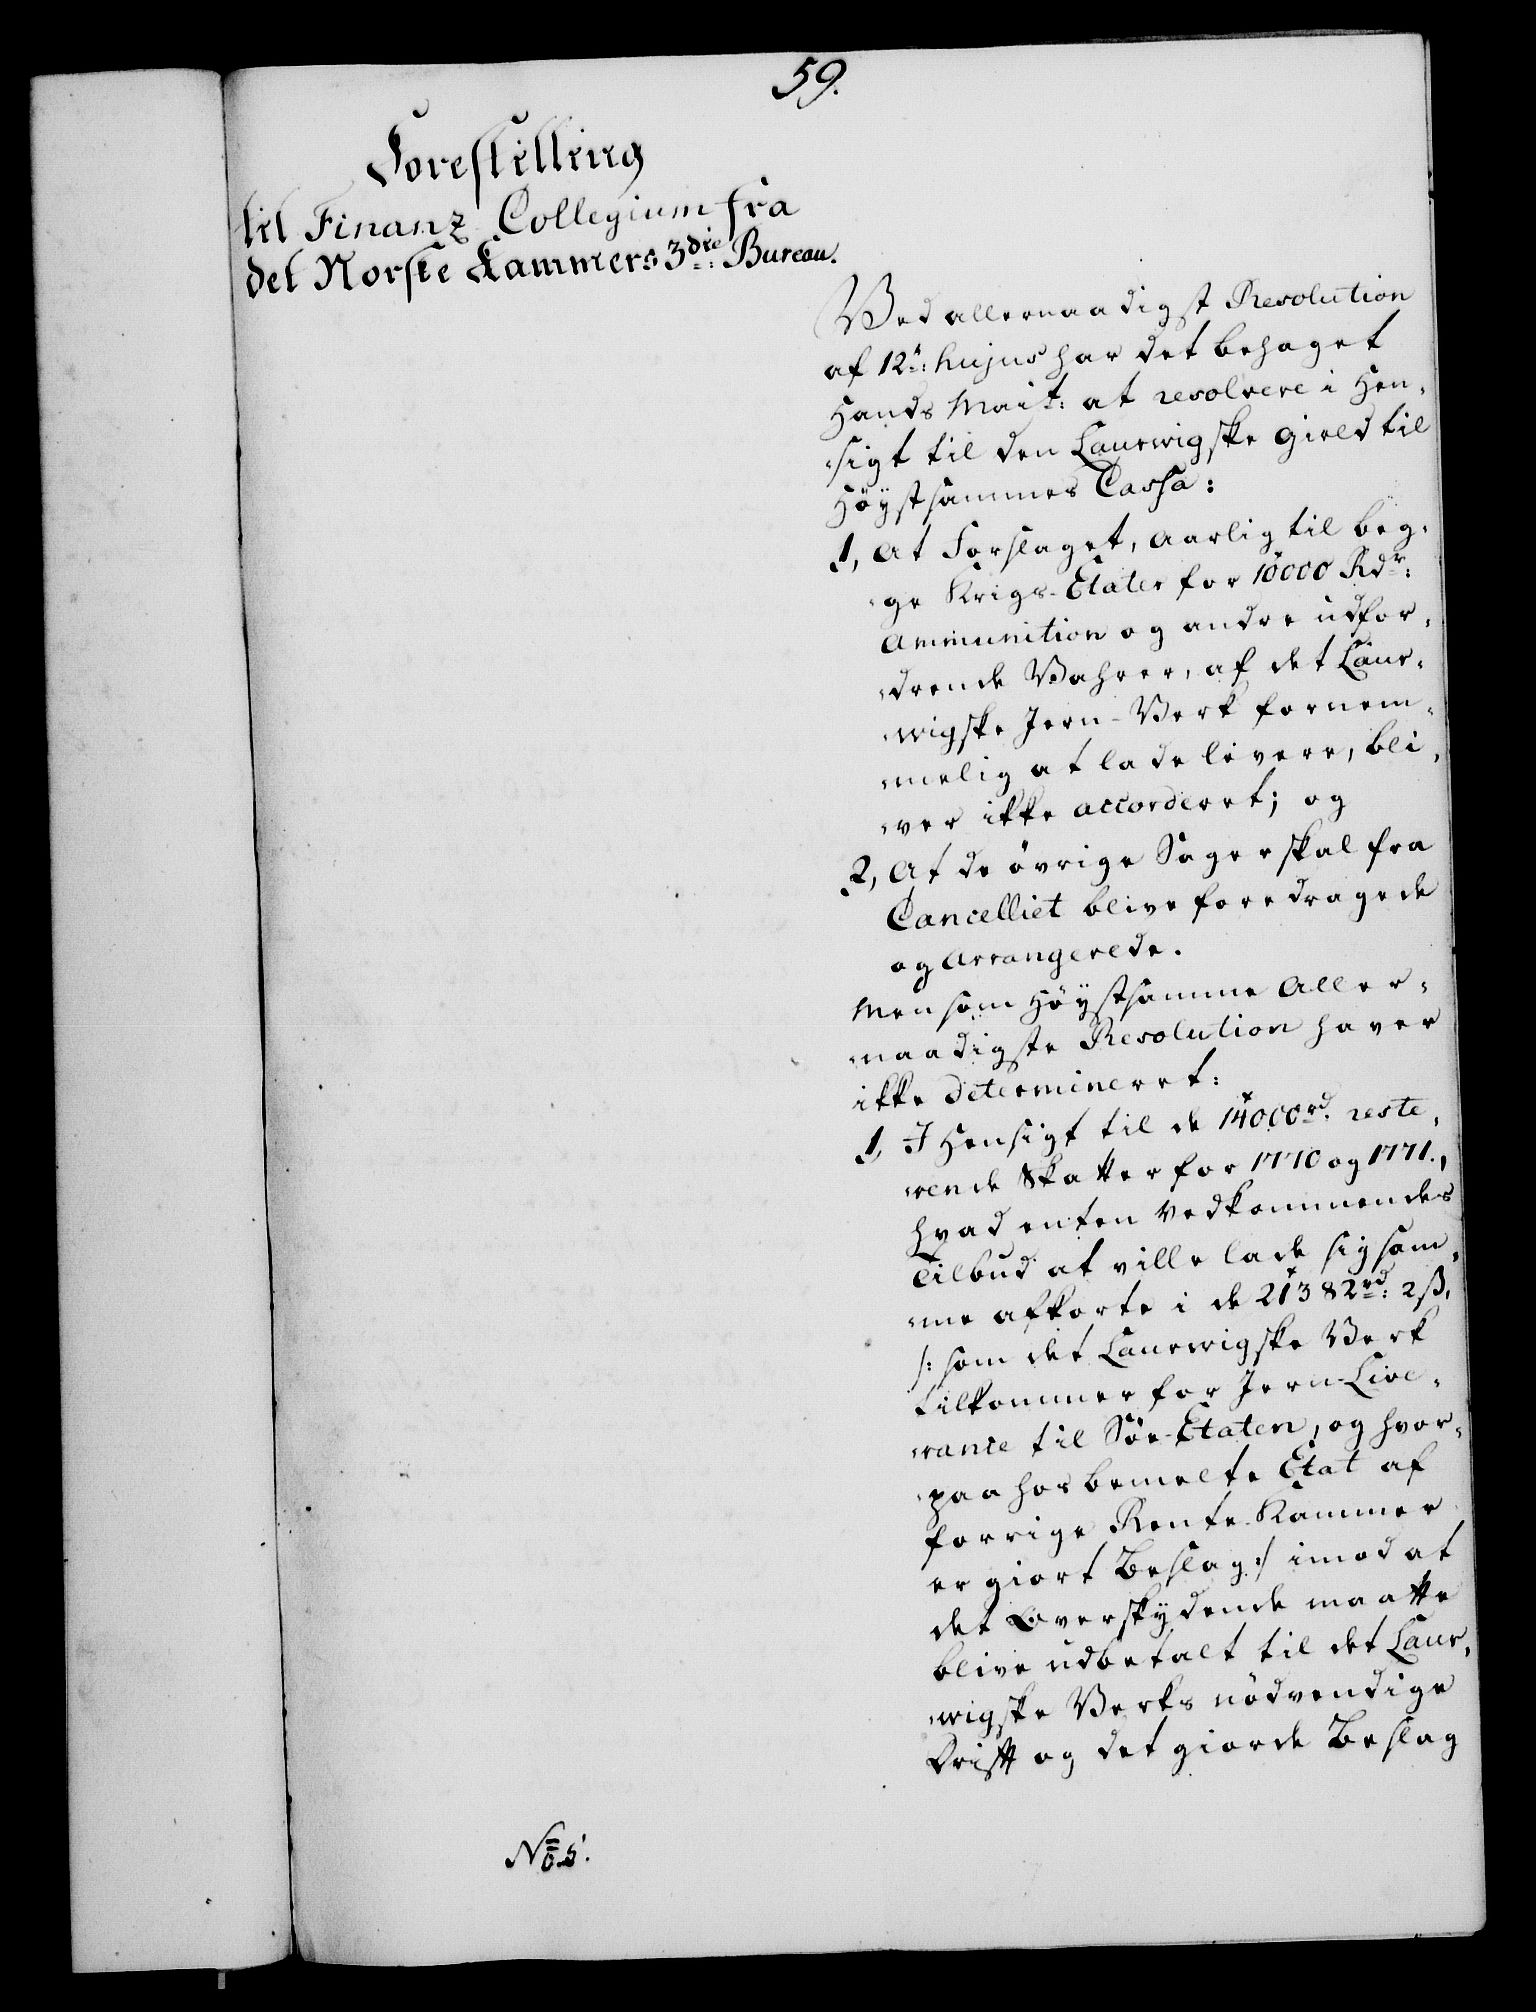 59.
Forestilling
til Finanz Collegium fra
det Norske Kammers 3die Bureau.
Ved allernaadigst Resolution
af 12te hujus har det behaget
Hands Mait: at resolvere i Hen-
sigt til den Laurwigske Gield til
Høystsammes Cassa:
1, At Forslaget, Aarlig til beg-
ge Krigs-Etater for 10000 Rdr:
Ammunition og andre udfor-
drende Vahrer, af det Laur-
wigske Jern-Verk fornem-
melig at lade levere, bli-
ver ikke accorderet; og
2, At de øvrige Sager skal fra
Cancelliet blive foredragede
og Arrangerede.
Men som Høystsamme Aller-
naadigste Resolution haver
ikke determineret:
1, I Hensigt til de 14000rd. reste-
rende Skatter for 1770 og 1771.,
hvad enten Vedkommendes
Tilbud at ville lade sig sam-
me afkorte i de 21382rd: 2ß,
/: som det Laurwigske Verk
tilkommer for Jern-Live-
rance til Søe-Etaten, og hvor-
paa hos bemelte Etat af
forrige Rente-Kammer
er giort Beslag :/ imod at
det Overskydende maatte
blive udbetalt til det Laur-
wigske Verks nødvendige
Drift og det giorde Beslag
No 5.